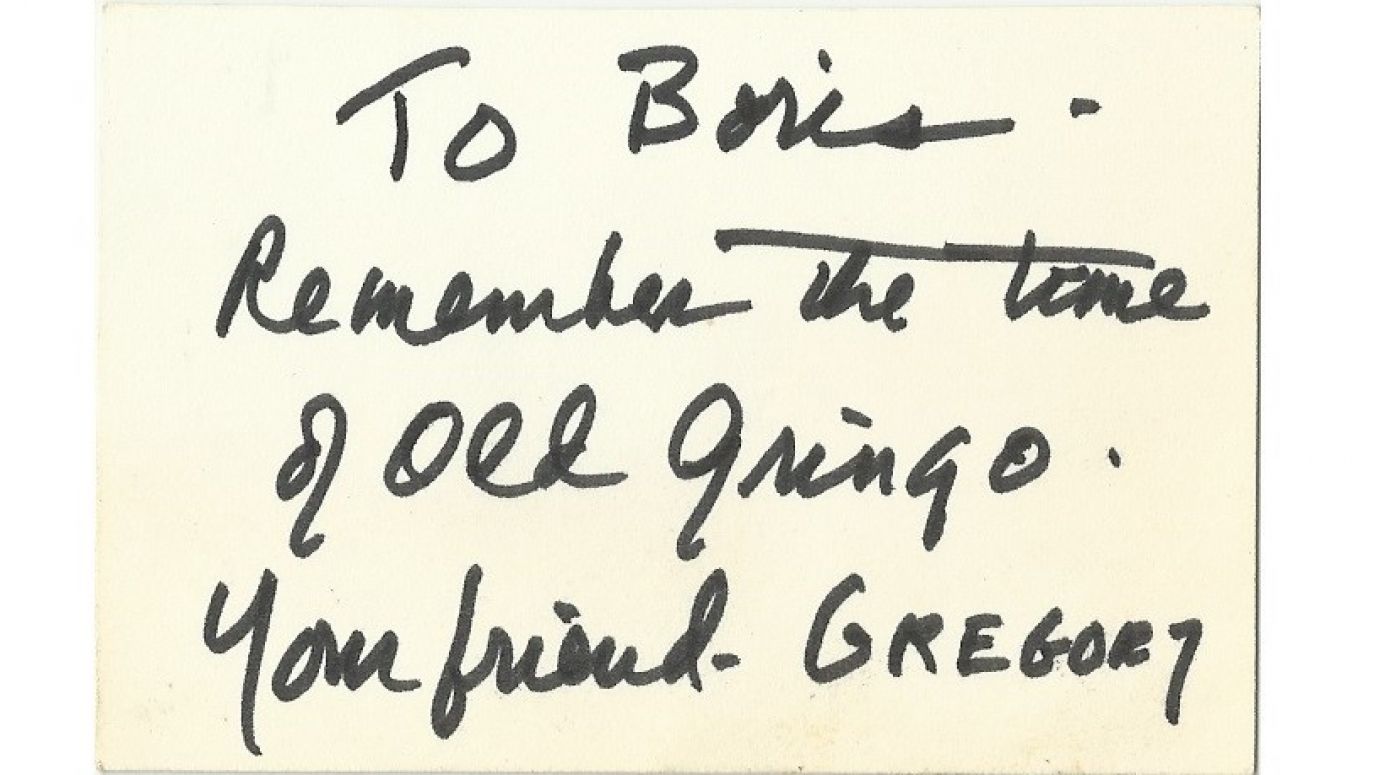 To Boris -
Remember the time
of Old Gringo.
Your friend - GREGORY